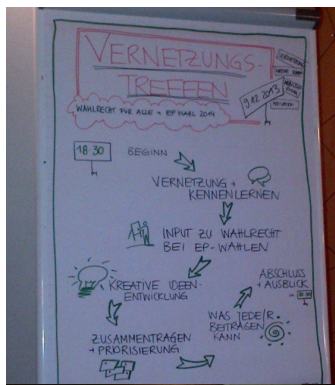 VERNETZUNGS-
TREFFEN
9.12.2013
WAHLRECHT FÜR ALLE + EP WAHL 2014
18:30
BEGINN
VERNETZUNG +
KENNENLERNEN
INPUT ZU WAHLRECHT
BEI EP-WAHLEN
KREATIVE IDEEN-
ENTWICKLUNG
ZUSAMMENTRAGEN
+ PRIORISIERUNG
WAS JEDE/R
BEITRAGEN
KANN
ABSCHLUSS
+ AUSBLICK